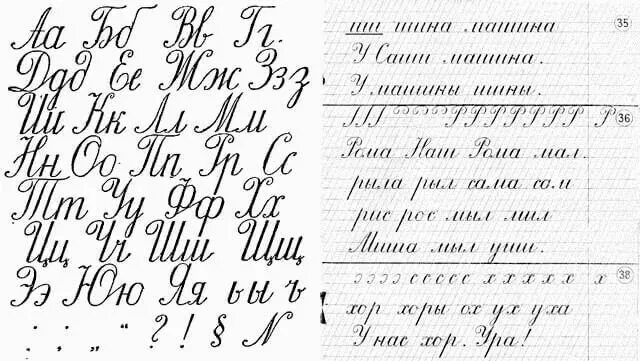 Аа Бб Вв Гг.
Ддд Ее Жж Ззз
Ии Кк Лл Мм
Нн Оо Пп Рр Сс
Тт Уу Фф Хх
Цц Чч Шш Щщ
Ээ Юю Яя ь ы ъ
. ; „ “ ? ! § N
ши шина машина 35
У Саши машина.
У машины шины.
Р Р Р Р Р Р Р Р 36
Рома Наш Рома мал.
рыла рыл сама сом
рис рос мыл мил
Миша мыл уши.
с с с с с х х х х х х 38
хор хоры ох ух уха
У нас хор. Ура!